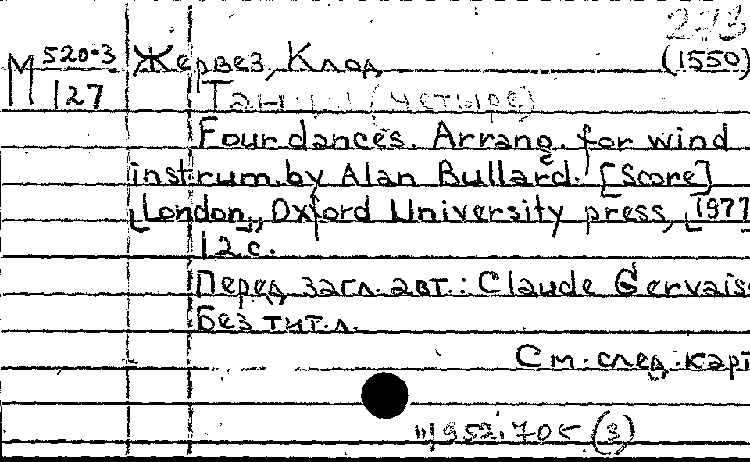 273
М 520-3 Жервез, Клод (1550)
127 Танцы (четыре)
Four dances. Arrang. for wind
instrum. by Alan Bullard. [Score]
[London], Oxford University press, [1977
12 с.
Перед загл. авт.: Claude Gervais
Без тит. л.
См. след. карт
(3)